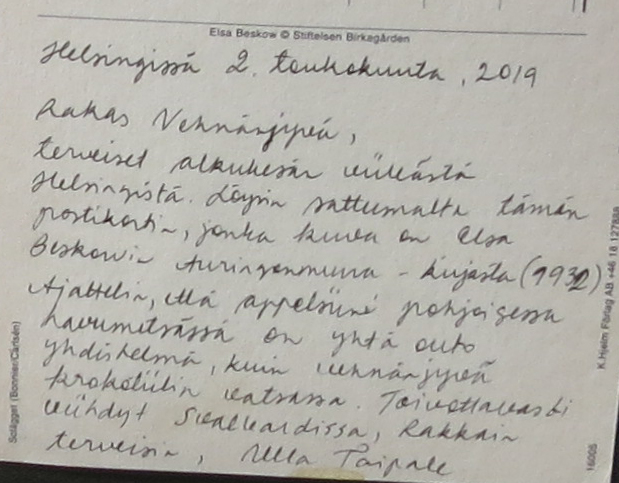 Elsa Beskow © Stiftelsen Birkagården
Helsingissä 2. toukokuuta, 2019
Rakas Vehnänjyvä,
terveiset alkukesän viileästä
Helsingistä. Löysin sattumalta tämän
postikortin, jonka kuva on Elsa
Beskowin Auringonmuna - kirjasta (1932)
Ajattelin, että appelsiini pohjoisessa
havumetsässä on yhtä outo
yhdistelmä, kuin vehnänjyvä
krokotiilin vatsassa. Toivottavasti
viihdyt Svalbardissa, Rakkain
terveisin, Ulla Taipale
Solägget (Bonnier/Carlsén)
K.Hjelm Förlag AB +46 18 127888
16005